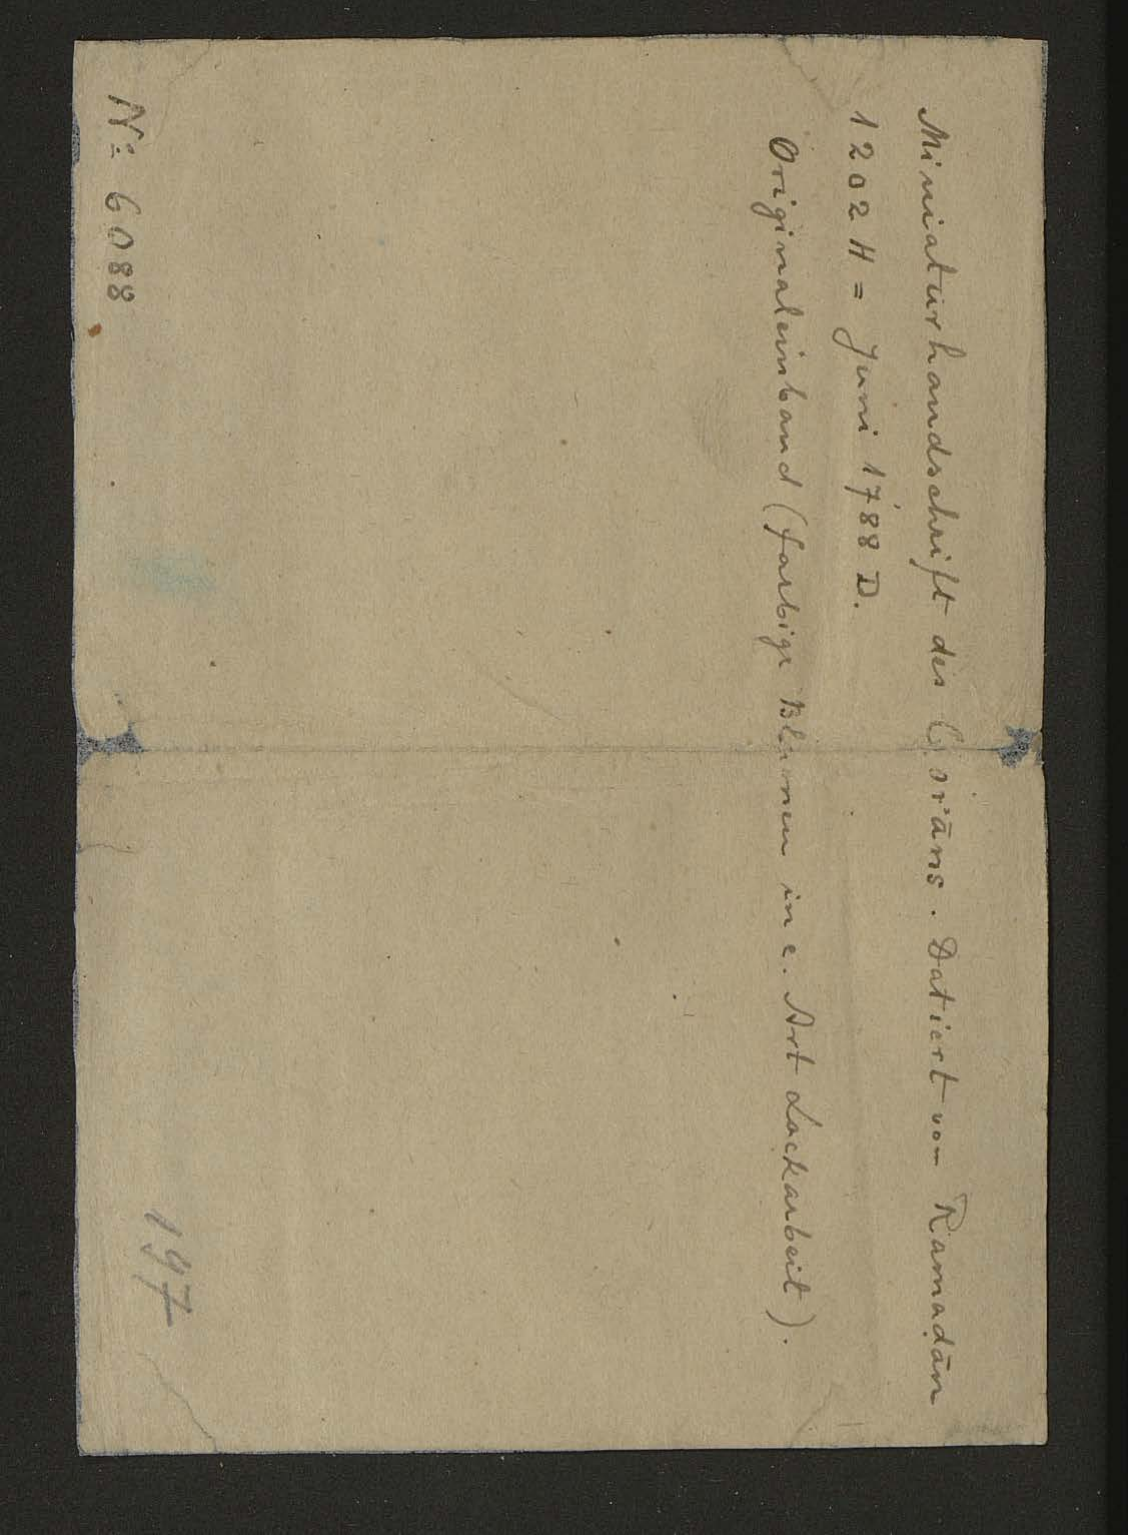 Miniaturhandschrift des Qorʾāns. Datiert vom Ramaḍān
1202 H = Juni 1788 D.
Originaleinband (farbige Blumen in e. Art Lackarbeit).
No 6088
197